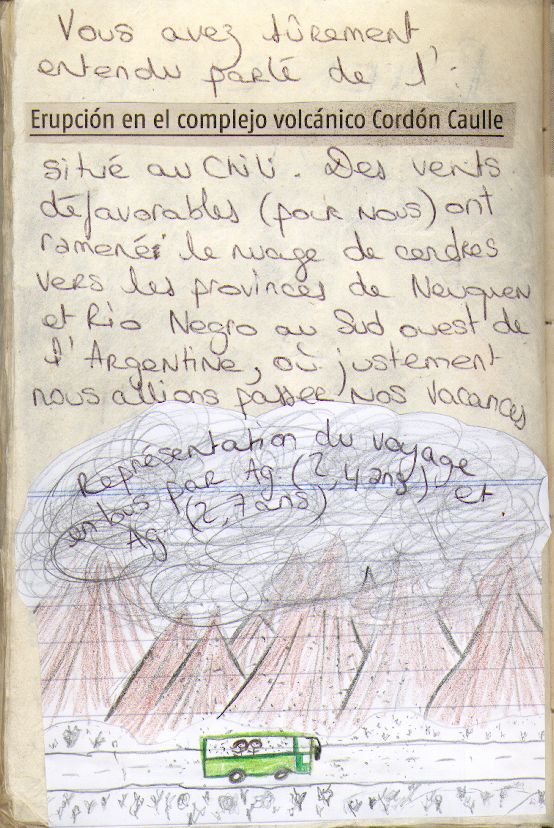 Vous avez sûrement
entendu parlé de l':
Erupción en el complejo volcánico Cordón Caulle
situé au Chili. Des vents
défavorables (pour nous) ont
ramené le nuage de cendres
vers les provinces de Neuquen
et Rio Negro au Sud ouest de
l'Argentine, où justement
nous allions passer nos vacances
Représentation du voyage
en bus par Ag. (2,4 ans) et
Ag. (2,7 ans)